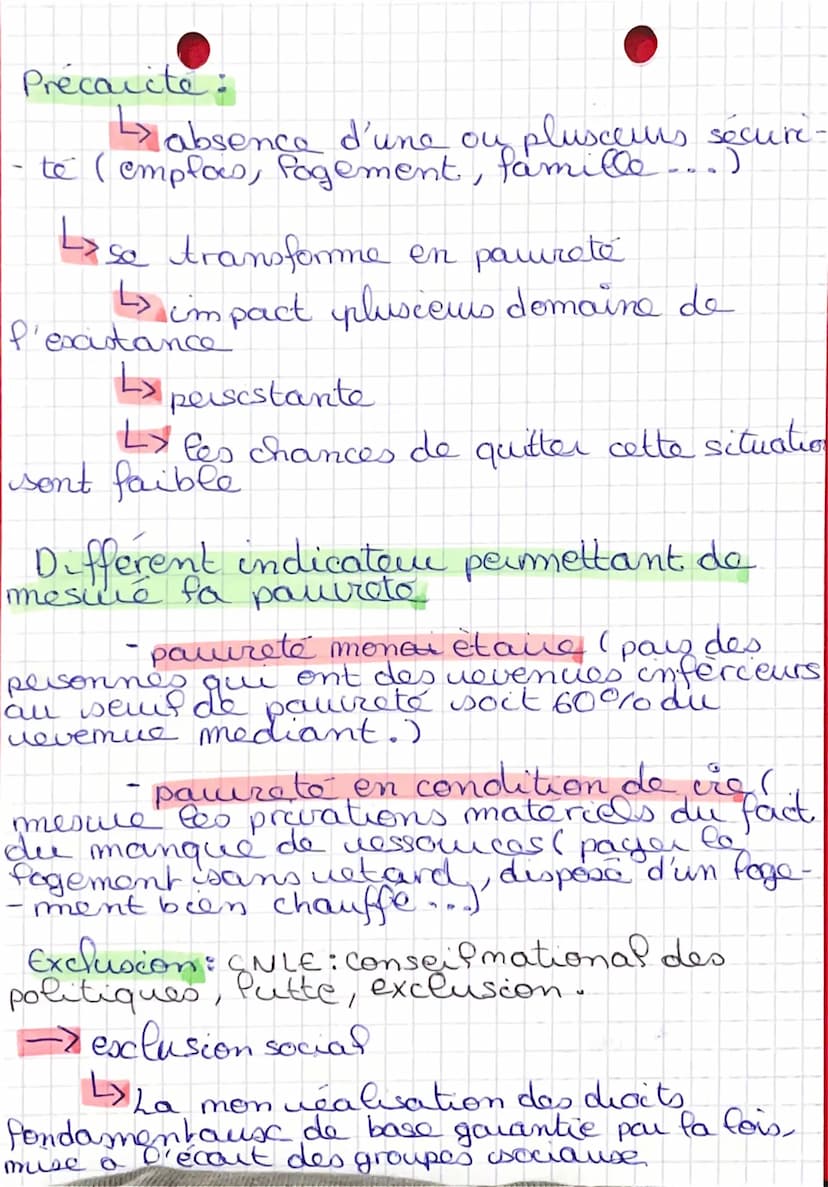 Précarité :
↳ absence d'une ou plusieurs sécuri-
- té (emplois, logement, famille ...)
↳ se transforme en pauvreté
↳ impact plusieurs domaine de
l'existance
↳ persistante
↳ les chances de quitter cette situation
sont faible
Différent indicateur permettant de
mesuré la pauvreté
- pauvreté monaiètaire (pays des
personnes qui ont des revenues inférieurs
au seuil de pauvreté soit 60% du
revenue mediant.)
- pauvreté en condition de vie (
mesure les privations materiels du fact
du manque de ressources (payer le
logement sans retard, disposé d'un loge-
- ment bien chauffé ...)
Exclusion : CNLE : conseil national des
politiques, lutte, exclusion.
→ exclusion social
↳ La non réalisation des droits
fondamentaux de base garantie par la lois,
mise a l'écart des groupes sociaux